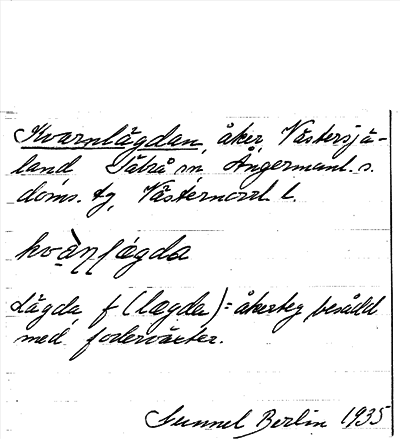 Kvarnlägdan, åker, Västersjä-
land Säbrå sn, Ångermanl. s.
doms. tg, Västernorrl. l.
Lägda, f (lægda) = åkerteg, besådd
med foderväxter.
Gunnel Berlin 1935